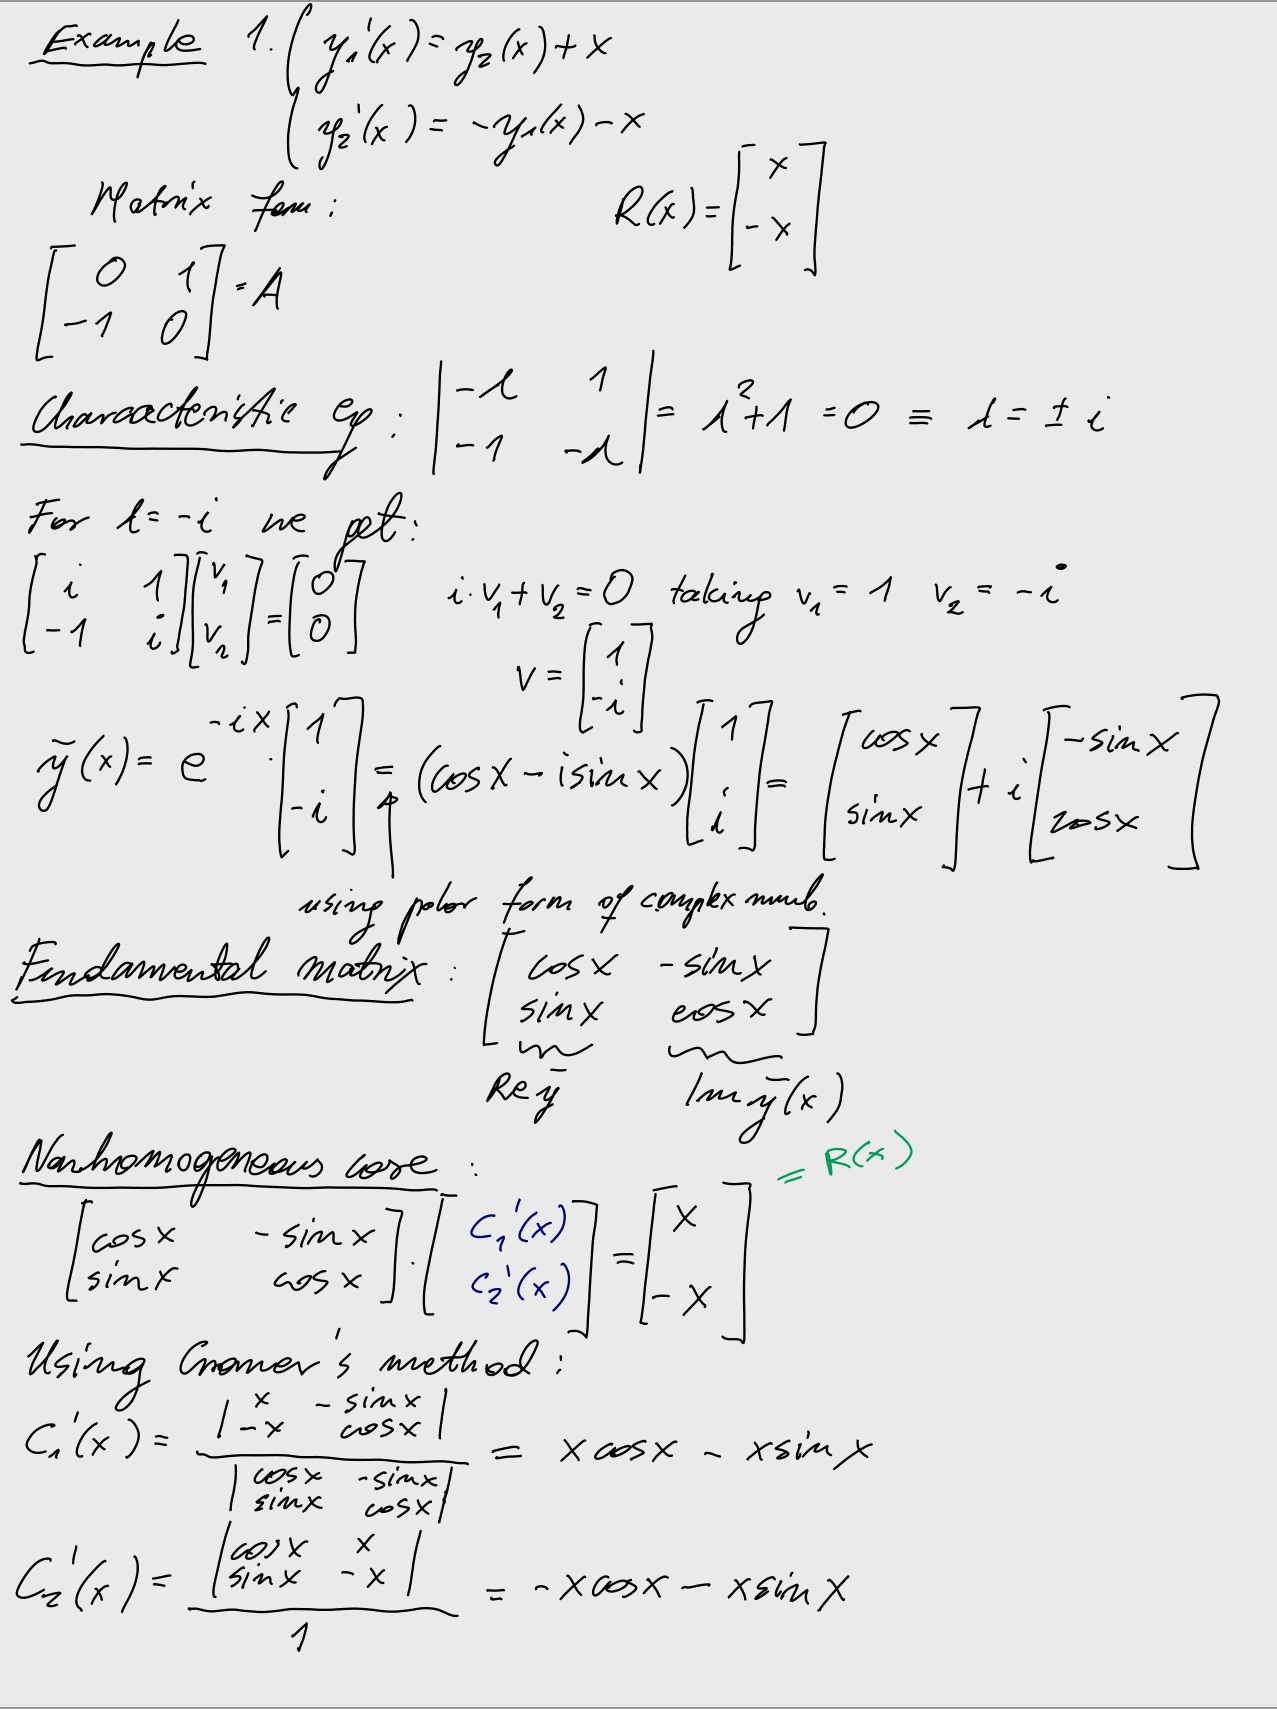 Example 1. { y₁'(x) = y₂(x) + x
y₂'(x) = -y₁(x) - x
Matrix form: R(x) = [ x ; -x ]
[ 0 1 ; -1 0 ] = A
Characteristic eq: | -λ 1 ; -1 -λ | = λ² + 1 = 0 ≡ λ = ± i
For λ = -i we get:
[ i 1 ; -1 i ] [ v₁ ; v₂ ] = [ 0 ; 0 ] i·v₁ + v₂ = 0 taking v₁ = 1 v₂ = -i
v = [ 1 ; -i ]
ȳ(x) = e^(-ix) · [ 1 ; -i ] = (cosx - isinx) [ 1 ; i ] = [ cosx ; sinx ] + i [ -sinx ; cosx ]
using polar form of complex numb.
Fundamental matrix: [ cosx -sinx ; sinx cosx ]
Re ȳ Im ȳ(x)
Nonhomogeneous case: = R(x)
[ cosx -sinx ; sinx cosx ] · [ C₁'(x) ; C₂'(x) ] = [ x ; -x ]
Using Cramer's method:
C₁'(x) = | x -sinx ; -x cosx | / | cosx -sinx ; sinx cosx | = xcosx - xsinx
C₂'(x) = | cosx x ; sinx -x | / 1 = -xcosx - xsinx